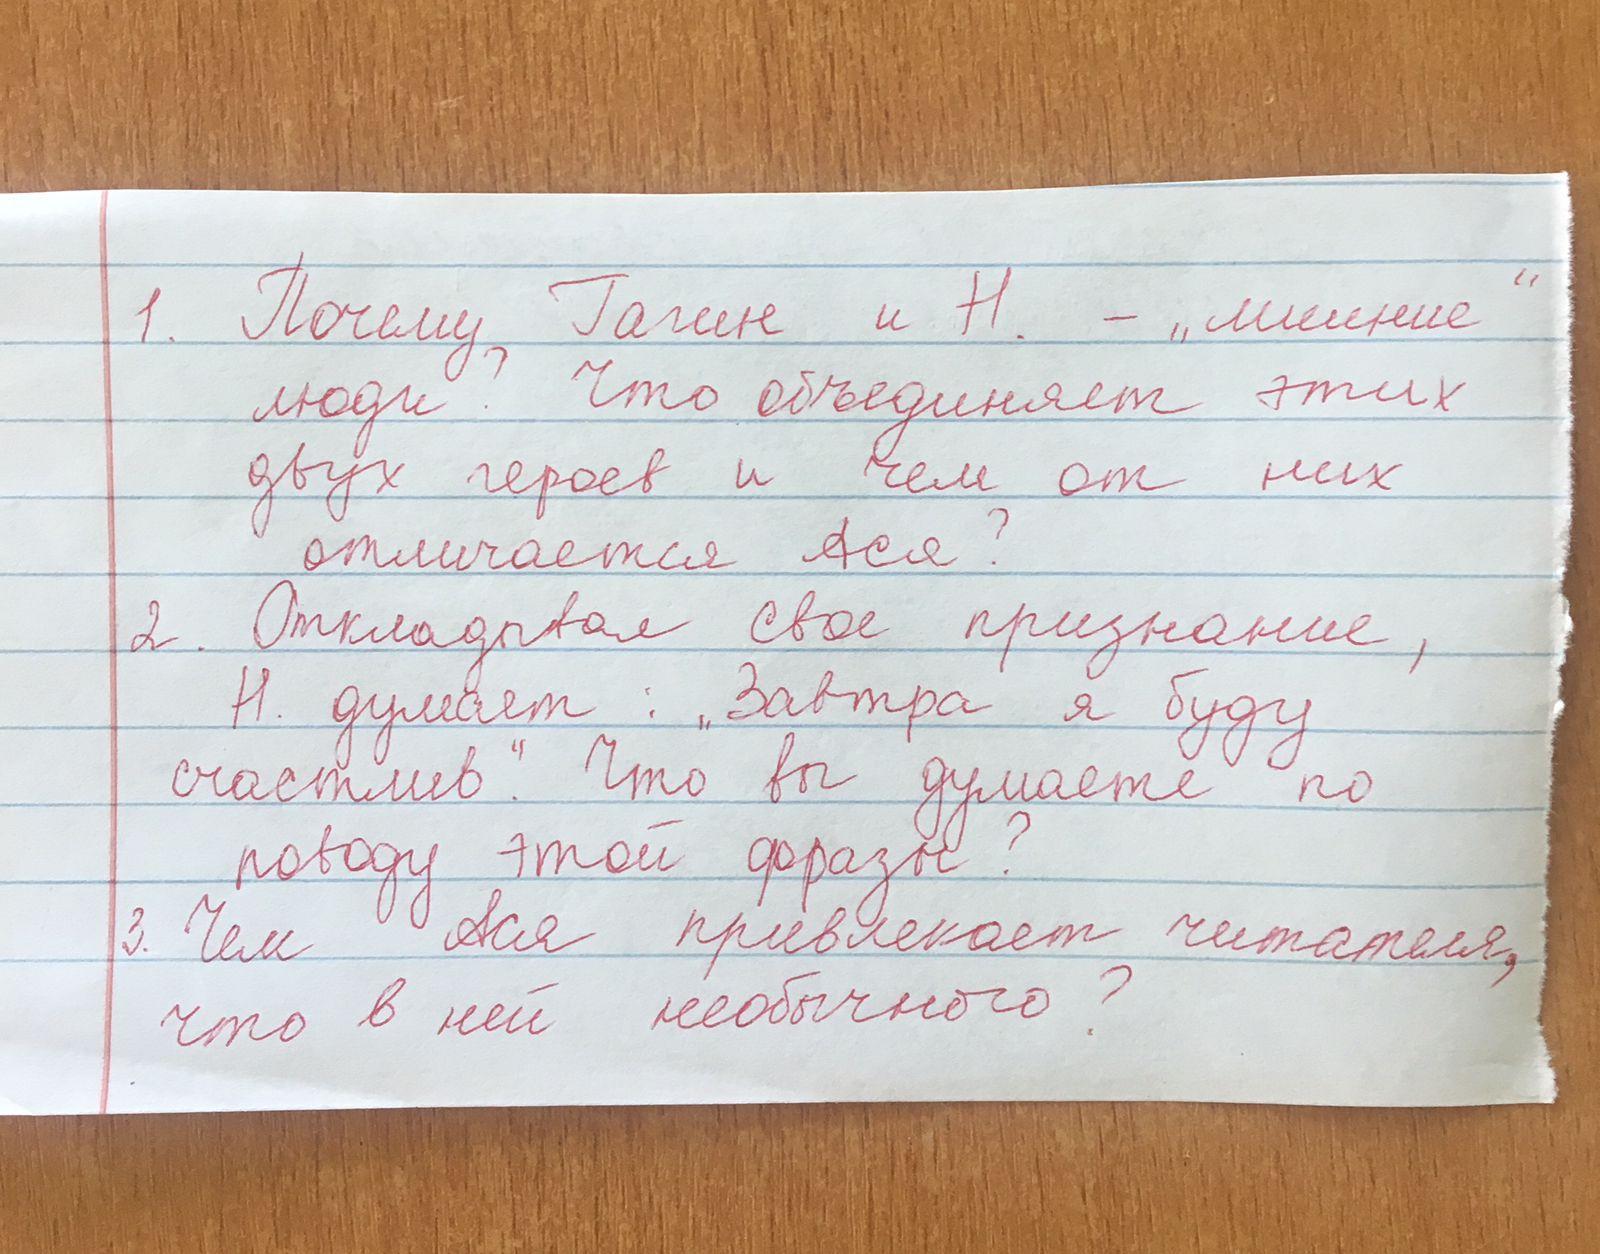 1. Почему Гагин и Н. – „лишние“
люди? Что объединяет этих
двух героев и чем от них
отличается Ася?
2. Откладывая свое признание,
Н. думает: „Завтра я буду
счастлив“. Что вы думаете по
поводу этой фразы?
3. Чем Ася привлекает читателя,
что в ней необычного?